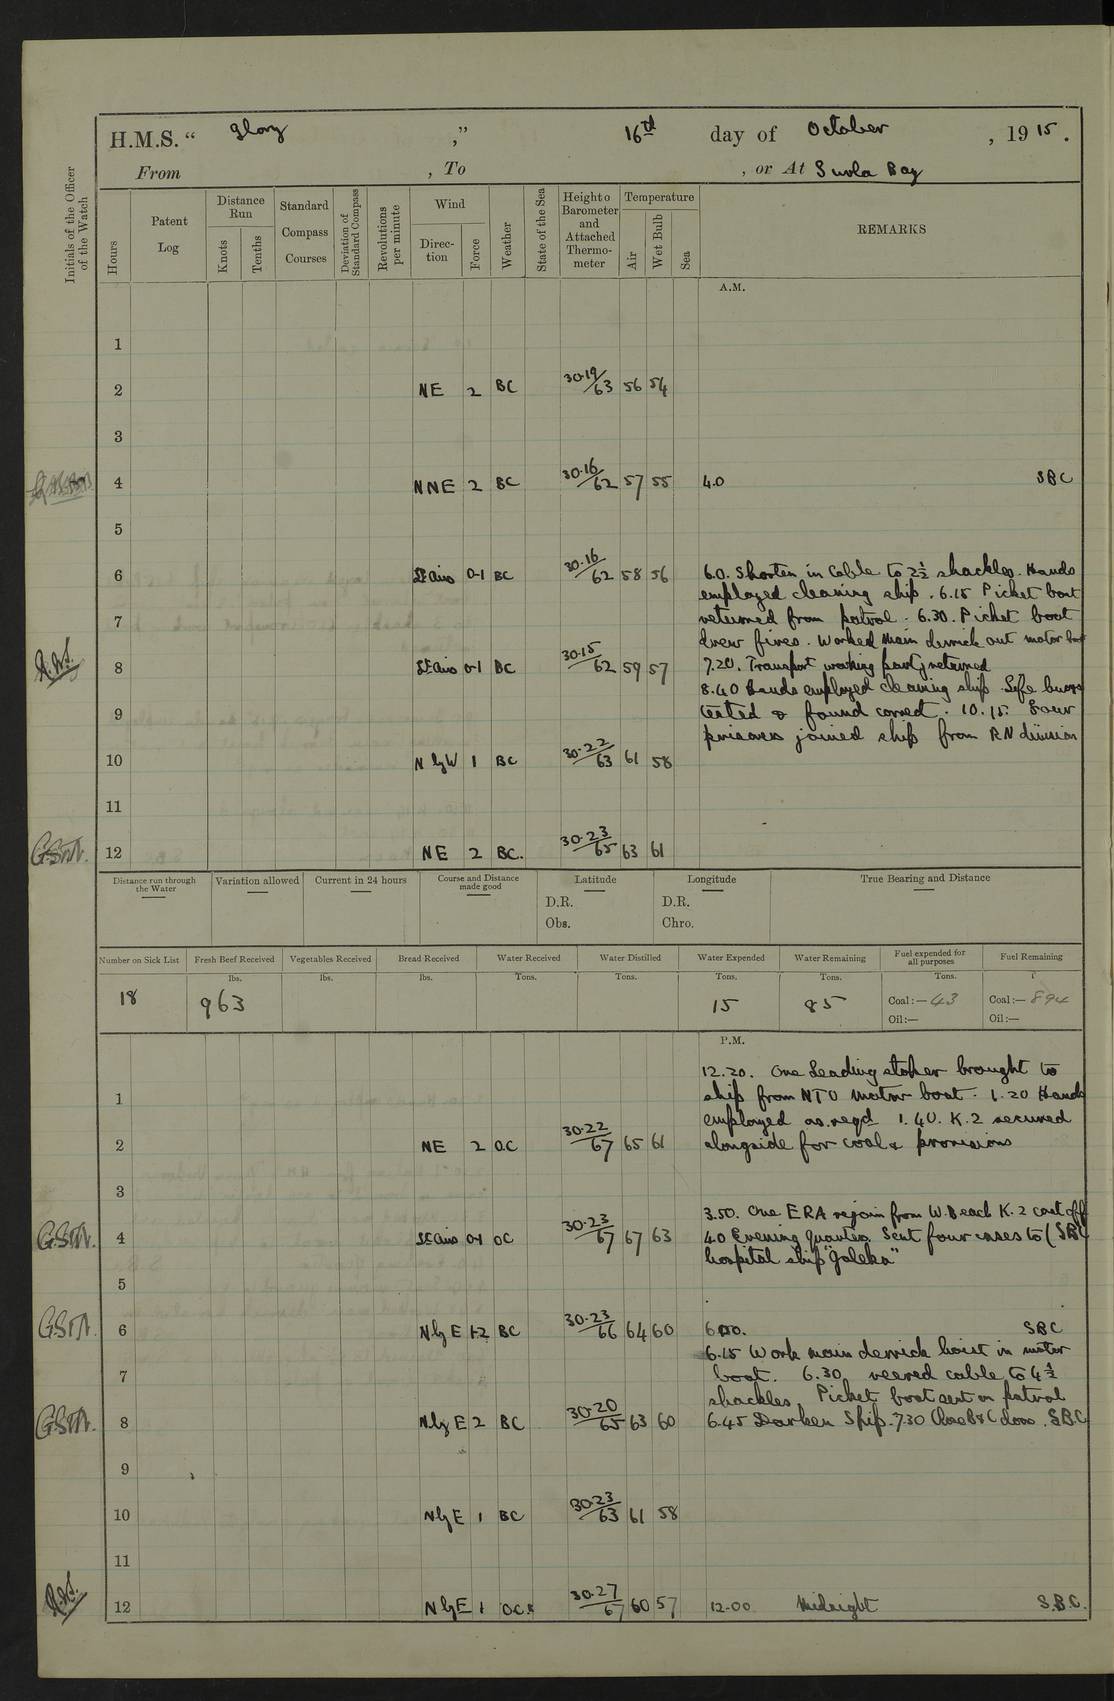 H.M.S. “ Glory ,” 16th day of October , 1915.
From , To , or At Suvla Bay
Initials of the Officer of the Watch
Hours
Patent Log
Distance Run
Knots
Tenths
Standard Compass Courses
Deviation of Standard Compass
Revolutions per minute
Wind
Direc-tion
Force
Weather
State of the Sea
Height of Barometer and Attached Thermo-meter
Temperature
Air
Wet Bulb
Sea
REMARKS
A.M.
1
2 NE 2 BC 30.19/63 56 54
3
4 NNE 2 BC 30.16/62 57 55 4.0 SBC
5
6 LtAirs 0-1 BC 30.16/62 58 56 6.0. Shorten in Cable to 2½ shackles. Hands
employed cleaning ship. 6.15 Picket boat
7 returned from patrol. 6.30. Picket boat
drew fires. Worked main derrick out motor boat
8 LtAirs 0-1 BC 30.15/62 59 57 7.20. Transport working party returned
8.40 Hands employed cleaning ship. Life buoys
9 tested & found correct. 10.15. Four
prisoners joined ship from RN division
10 N by W 1 BC 30.22/63 61 58
11
G.S.M. 12 NE 2 BC. 30.23/65 63 61
Distance run through the Water
Variation allowed
Current in 24 hours
Course and Distance made good
Latitude
D.R.
Obs.
Longitude
D.R.
Chro.
True Bearing and Distance
Number on Sick List
18
Fresh Beef Received
lbs.
963
Vegetables Received
lbs.
Bread Received
lbs.
Water Received
Tons.
Water Distilled
Tons.
Water Expended
Tons.
15
Water Remaining
Tons.
85
Fuel expended for all purposes
Tons.
Coal:— 43
Oil:—
Fuel Remaining
T
Coal:— 894
Oil:—
P.M.
12.20. One Leading stoker brought to
1 ship from NTO motor boat. 1.20 Hands
employed as reqd 1.40. K.2 secured
2 NE 2 OC 30.22/67 65 61 alongside for coal & provisions
3
3.50. One ERA rejoin from W. Beach K.2 cast off
G.S.M. 4 LtAirs 0-1 OC 30.23/67 67 63 4.0 Evening Quarters. Sent four cases to (SBC
hospital ship "Galeka"
5
G.S.M. 6 N by E 1-2 BC 30.23/66 64 60 6.00. SBC
6.15 Work main derrick hoist in motor
7 boat. 6.30 veered cable to 4½
shackles. Picket boat sent on patrol
G.S.M. 8 N by E 2 BC 30.20/65 63 60 6.45 Darken Ship. 7.30 Close B & C doors. SBC
9
10 N by E 1 BC 30.23/63 61 58
11
12 N by E 1 OC 30.27/67 60 57 12.00 Midnight S.B.C.